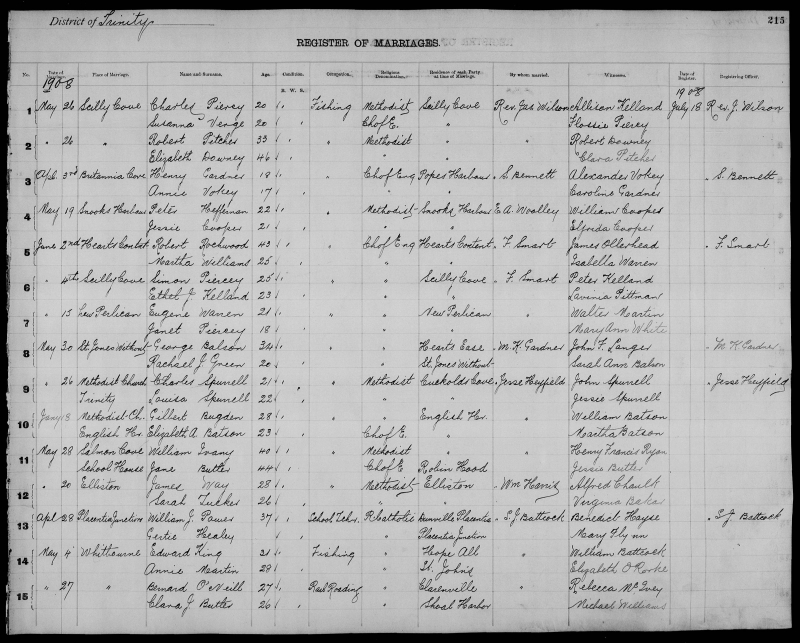 District of Trinity
215
REGISTER OF MARRIAGES.
No. Date of Place of Marriage. Name and Surname. Age. Condition. Occupation. Religious Denomination. Residence of each Party at Time of Marriage. By whom married. Witnesses. Date of Register. Registering Officer.
1908 B. W. S. 1908
1 May 26 Scilly Cove Charles Piercy 20 Fishing Methodist Scilly Cove Rev. Jas Wilson Allison Kelland July 18 Rev. J. Wilson
Susanna Verge 20 " Ch of E. " Flossie Piercy
2 " 26 " Robert Pitcher 33 " Methodist " " Robert Downey
Elizabeth Downey 46 " " " Clara Pitcher
3 3rd Britannia Cove Henry Gardner 19 " Ch of Eng Popes Harbour " S. Bennett Alexander Vokey " S. Bennett
Annie Vokey 17 " " " Caroline Gardner
4 May 19 Snooks Harbour Peter Heffernan 22 " Methodist Snooks Harbour E. A. Woolley William Cooper
Jessie Cooper 21 " " " Elfreda Cooper
5 June 2nd Hearts Content Robert Rockwood 43 " Ch of Eng Hearts Content " F. Smart James Ollerhead " F. Smart
Martha Williams 25 " " " Isabella Warren
6 " 4th Scilly Cove Simon Piercey 25 " " Scilly Cove " F. Smart Peter Kelland
Ethel J Kelland 23 " " " Lavenia Pittman
7 " 15 New Perlican Eugene Warren 21 " " New Perlican " Walter Martin
Janet Piercey 18 " " " Mary Ann White
8 May 30 St. Jones Without George Balson 34 " " Hearts Ease " M. K. Gardner John F. Langer " M. K. Gardner
Rachael J Green 20 " St. Jones Without Sarah Ann Balson
9 " 26 Methodist Church Charles Spurrell 21 " Methodist Cuckolds Cove Jesse Heyfield John Spurrell " Jesse Heyfield
Trinity Louisa Spurrell 22 " " " Jessie Spurrell
10 Jany 18 Methodist Ch. Gilbert Bugden 28 " " English Hr. " William Batson
English Hr. Elizabeth A Batson 23 Ch of E. " Martha Batson
11 May 28 Salmon Cove William Ivany 40 " Methodist " Henry Francis Ryan
School House Jane Butler 44 Ch of E Robin Hood Jessie Butler
12 " 20 Elliston James Way 28 " Methodist Elliston " Wm Harris Alfred Chaulk
Sarah Tucker 26 " " Virginia Baker
13 Apl 28 Placentia Junction William J. Power 37 School Tchr. R Catholic Placentia " S. J. Battcock Benedict Hayse " S. J. Battcock
Gertie Healey " Placentia Junction Mary Flynn
14 May 4 Whitbourne Edward King 31 Fishing " Hope All " William Battcock
Annie Martin 29 " St. John's Elizabeth O'Rorke
15 " 27 " Bernard O'Neill 27 Rail Roading " Clarenville " Rebecca McIvey
Clara J Butler 26 " Shoal Harbor Michael Williams